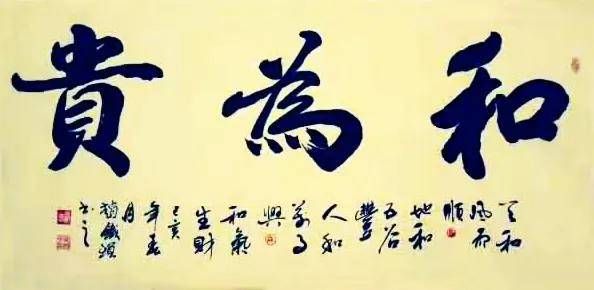 和為貴
天和
風雨
順
地和
五谷
豐
人和
萬事
興
和氣
生財
己亥
年春
月
書之